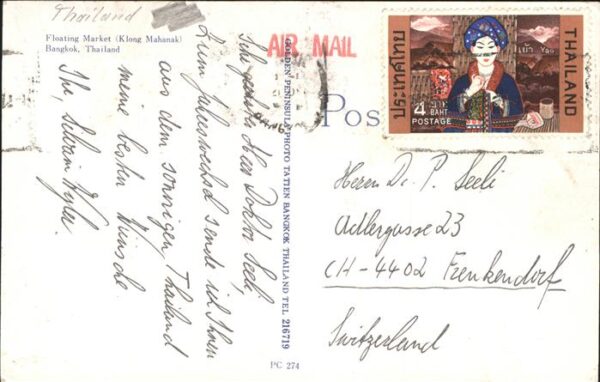 Thailand
Floating Market (Klong Mahanak)
Bangkok, Thailand
AIR MAIL
Sehr geehrter Herr Doktor Seeli,
Zum Jahreswechsel sende ich Ihnen
aus dem sonnigen Thailand
meine besten Wünsche
Ihr,
GOLDEN PENINSULA PHOTO TATIEN BANGKOK THAILAND TEL 216719
PC 274
Pos
ประเทศไทย
THAILAND
เย้า Yao
4 บาท
BAHT
POSTAGE
Herrn Dr. P. Seeli
Adlergasse 23
CH-4402 Frenkendorf
Switzerland